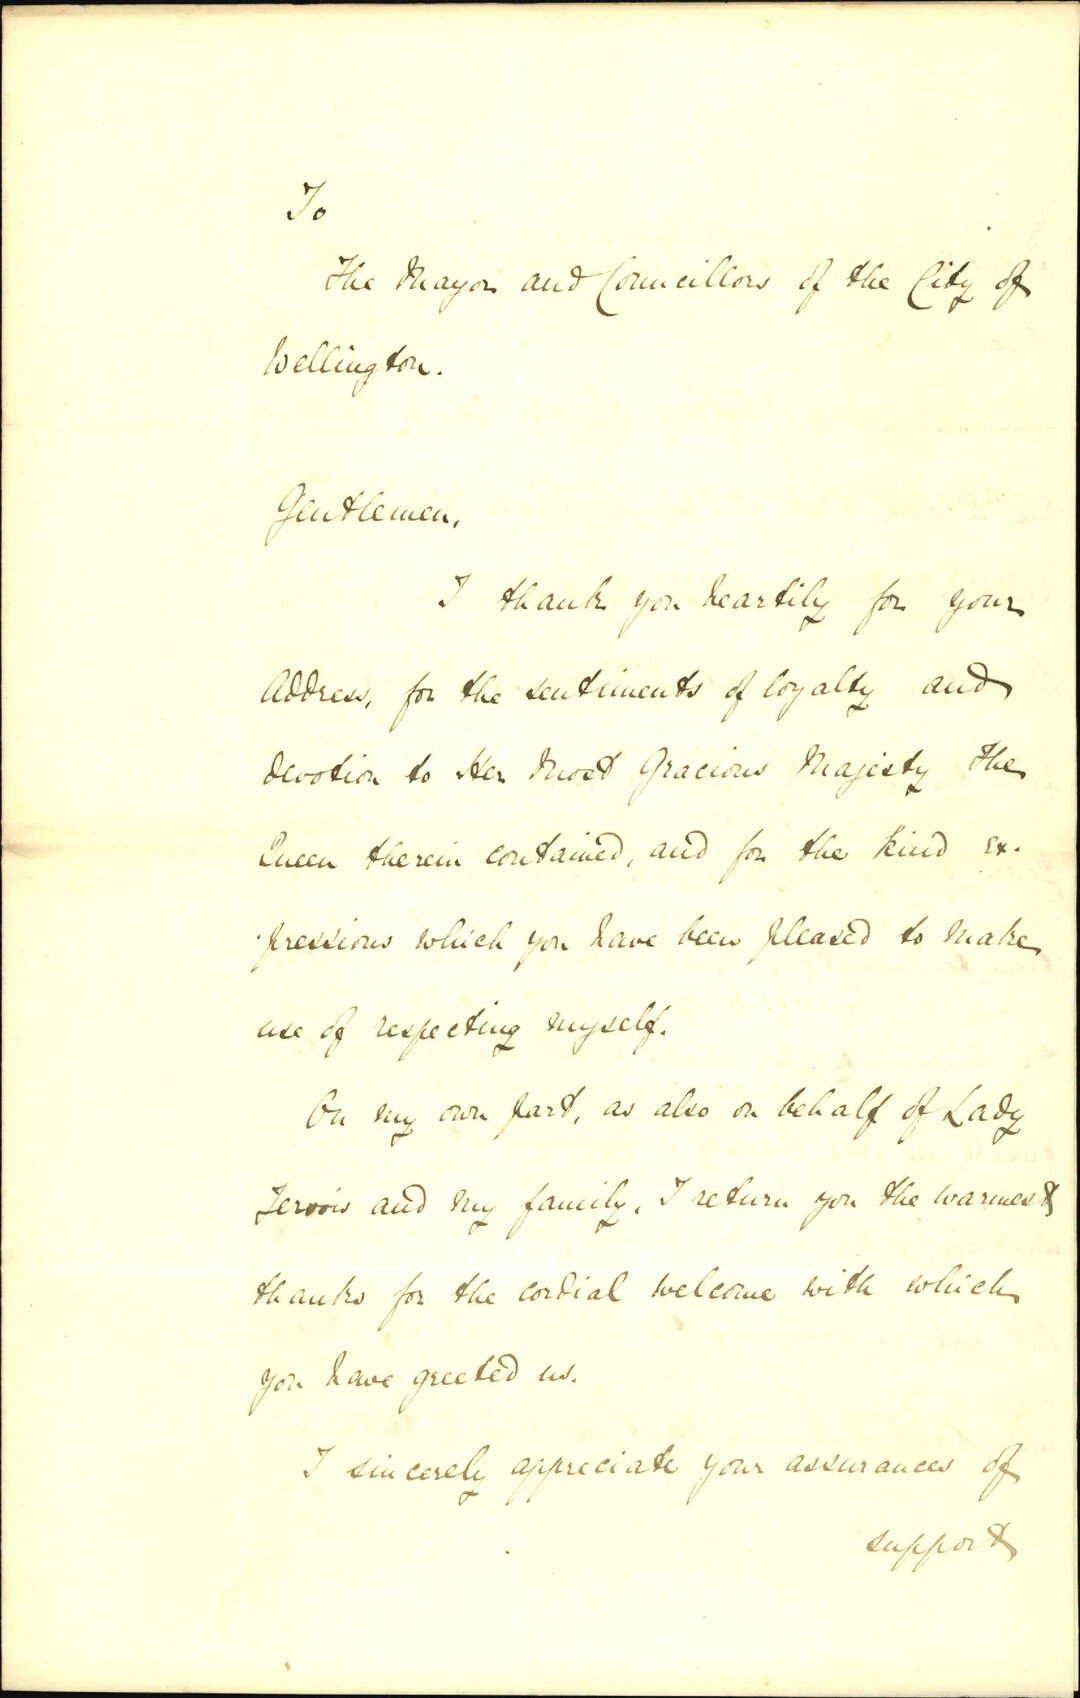 To
The Mayor and Councillors of the City of
Wellington.
Gentlemen,
I thank you heartily for your
Address, for the sentiments of loyalty and
devotion to Her Most Gracious Majesty the
Queen therein contained, and for the kind ex-
-pressions which you have been pleased to make
use of respecting myself.
On my own part, as also on behalf of Lady
Jervois and my family, I return you the warmest
thanks for the cordial welcome with which
you have greeted us.
I sincerely appreciate your assurances of
support